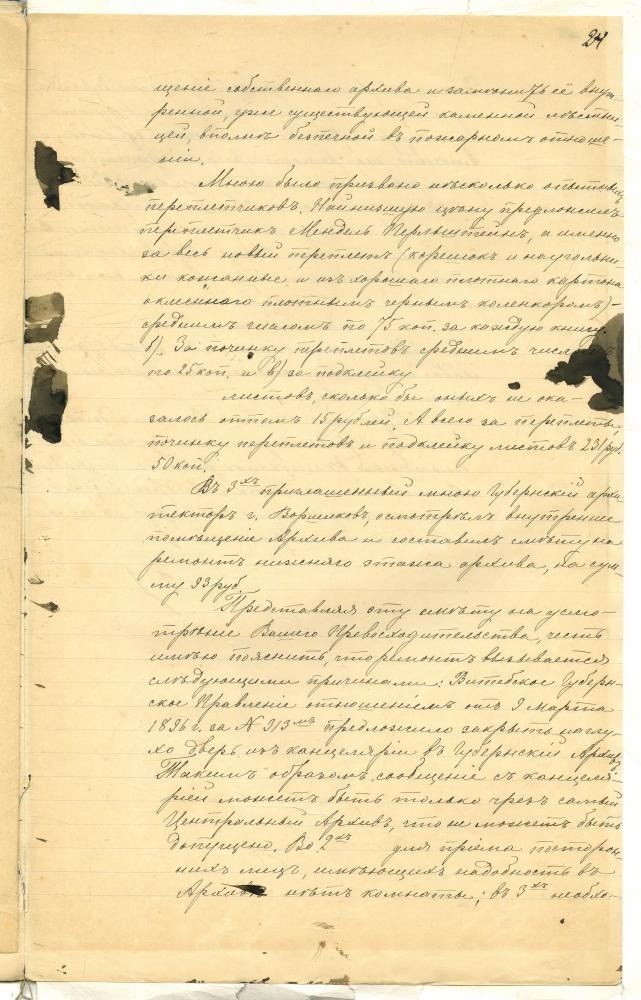 24
щеніе собственнаго архива и замѣнить её внут-
ренной, уже существующей каменной лѣстни-
цей, вполнѣ безпечной въ пожарномъ отноше-
ніи.
Мною было призвано нѣсколько опытныхъ
переплетчиковъ. Найнизшую цѣну предложилъ
переплетчикъ Мендель Перльштейнъ, а именно
за весь новый переплетъ (корешокъ и наугольни-
ки кожанные и изъ хорошаго плотнаго картона
оклеённаго плотнымъ чернымъ коленкоромъ) -
среднимъ числомъ по 75 коп. за каждую книгу.
б) За починку переплетовъ среднимъ числомъ
по 25 коп. и в) за подклейку
листовъ, сколько бы оныхъ не ока-
залось оптомъ 15 рублей. А всего за переплетъ
починку переплетовъ и подклейку листовъ 231 руб.
50 коп.
Въ 3хъ приглашенный мною Губернскій архи-
текторъ г. осмотрѣлъ внутреннее
помѣщеніе Архива и составилъ смѣту на
ремонтъ нижняго этажа архива, на сум-
му 93 руб.
Представляя эту смѣту на усмо-
трѣніе Вашего Превосходительства, честь
имѣю пояснить, что ремонтъ вызывается
слѣдующими причинами: Витебское Губерн-
ское Правленіе отношеніемъ отъ 9 Марта
1896 г. за № 313мъ предложило закрыть наглу-
хо дверь изъ канцеляріи въ Губернскій Архивъ
Такимъ образомъ сообщеніе съ канцеля-
ріей можетъ быть только чрезъ самый
Центральный Архивъ, что не можетъ быть
допущено. Во 2хъ для пріема посторон-
нихъ лицъ, имѣющихъ надобность въ
Архивѣ нѣтъ комнаты; въ 3хъ необхо-